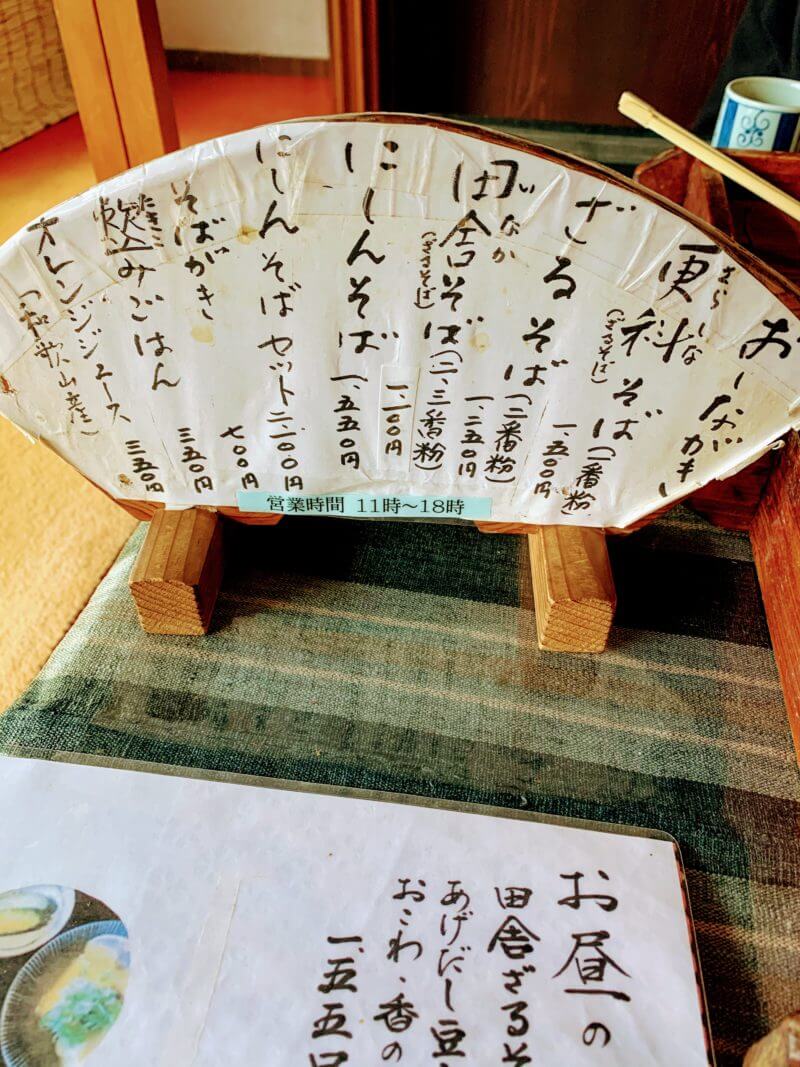 おしながき
更科そば(一番粉)
さらしな
(ざるそば)
一、五〇〇円
ざるそば(二番粉)
一、三五〇円
田舎そば(二、三番粉)
いなか
(ざるそば)
一、一〇〇円
にしんそば
一、五五〇円
にしんそばセット
二、一〇〇円
そばがき
七〇〇円
炊込みごはん
たきこ
三五〇円
オレンジジュース
(和歌山産)
三五〇円
営業時間 11時～18時
お昼の
田舎ざるそ
あげだし豆
おこわ、香の
一、五五〇